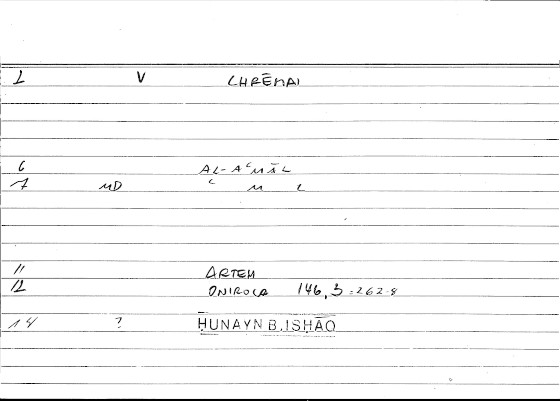 1 V CHRĒMAI
6 AL-AʿMĀL
7 MD ʿ M L
11 ARTEM
12 ONIROCR 146,3=262.8
14 ? ḤUNAYN B.ISḤĀQ